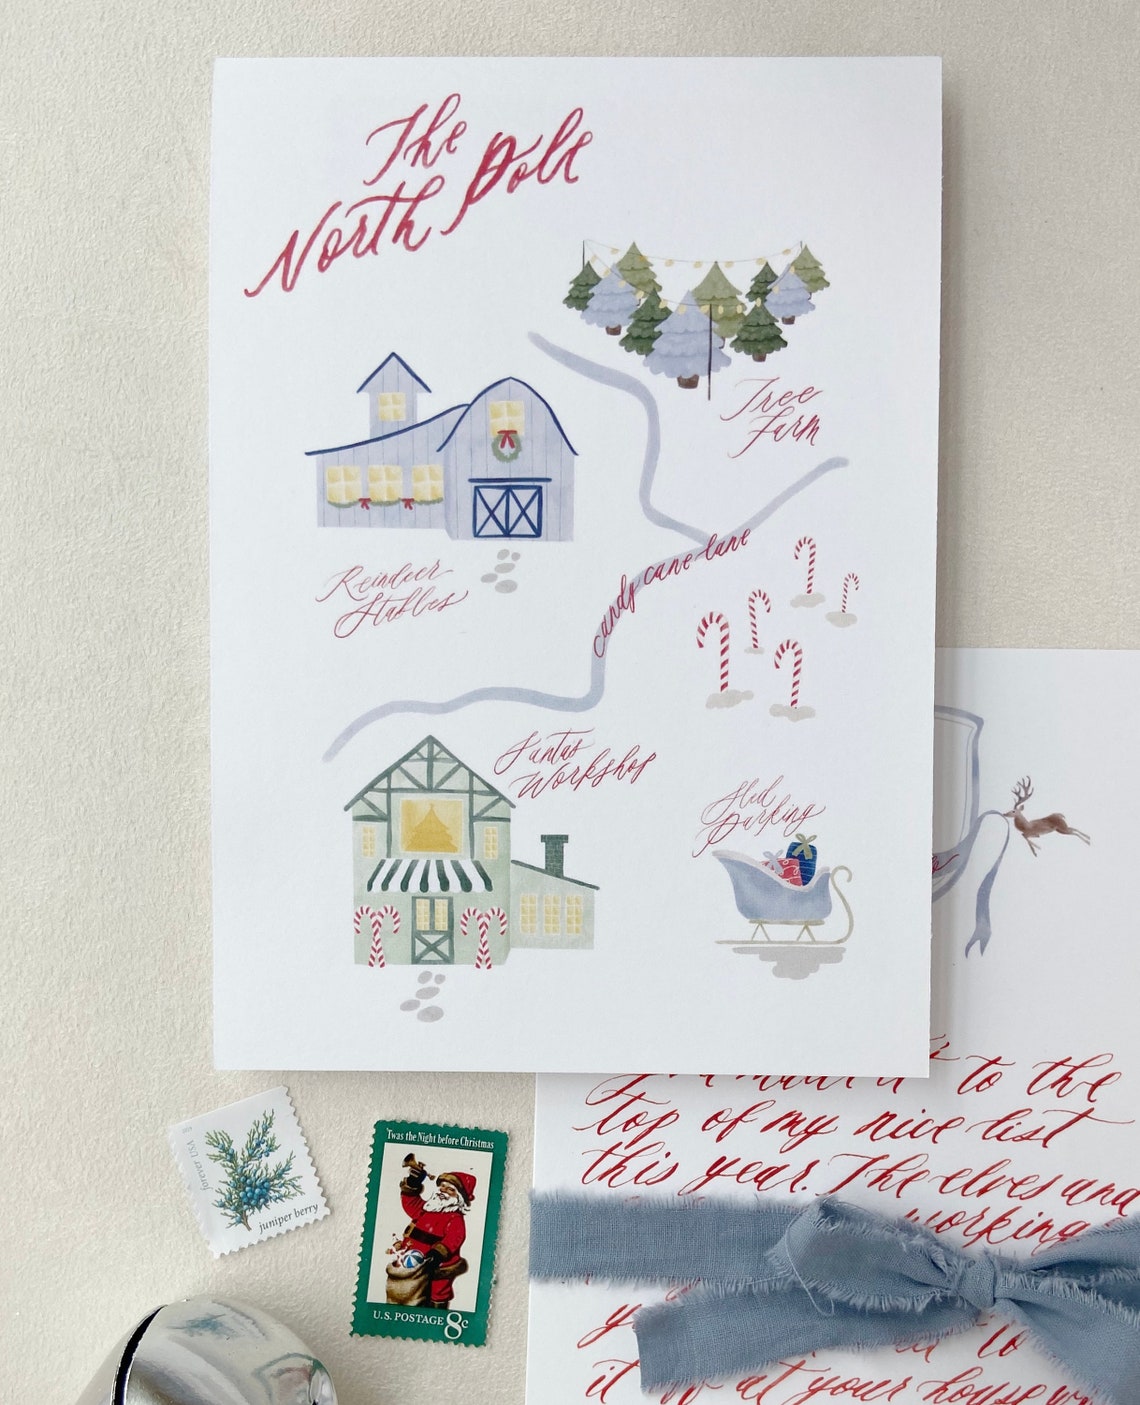 The
North Pole
Tree
Farm
Reindeer
Stables
candy cane lane
Santas
Workshop
Sled
Parking
to the
top of my nice list
this year. The elves and
working
to
it off at your house
forever USA
juniper berry
'Twas the Night before Christmas
U.S. POSTAGE 8c